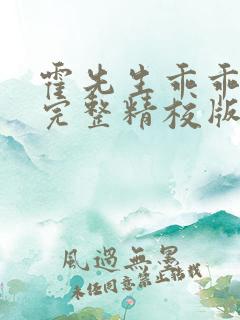 霍先生乖乖
完整精校版
風過無墨
未经同意禁止转载